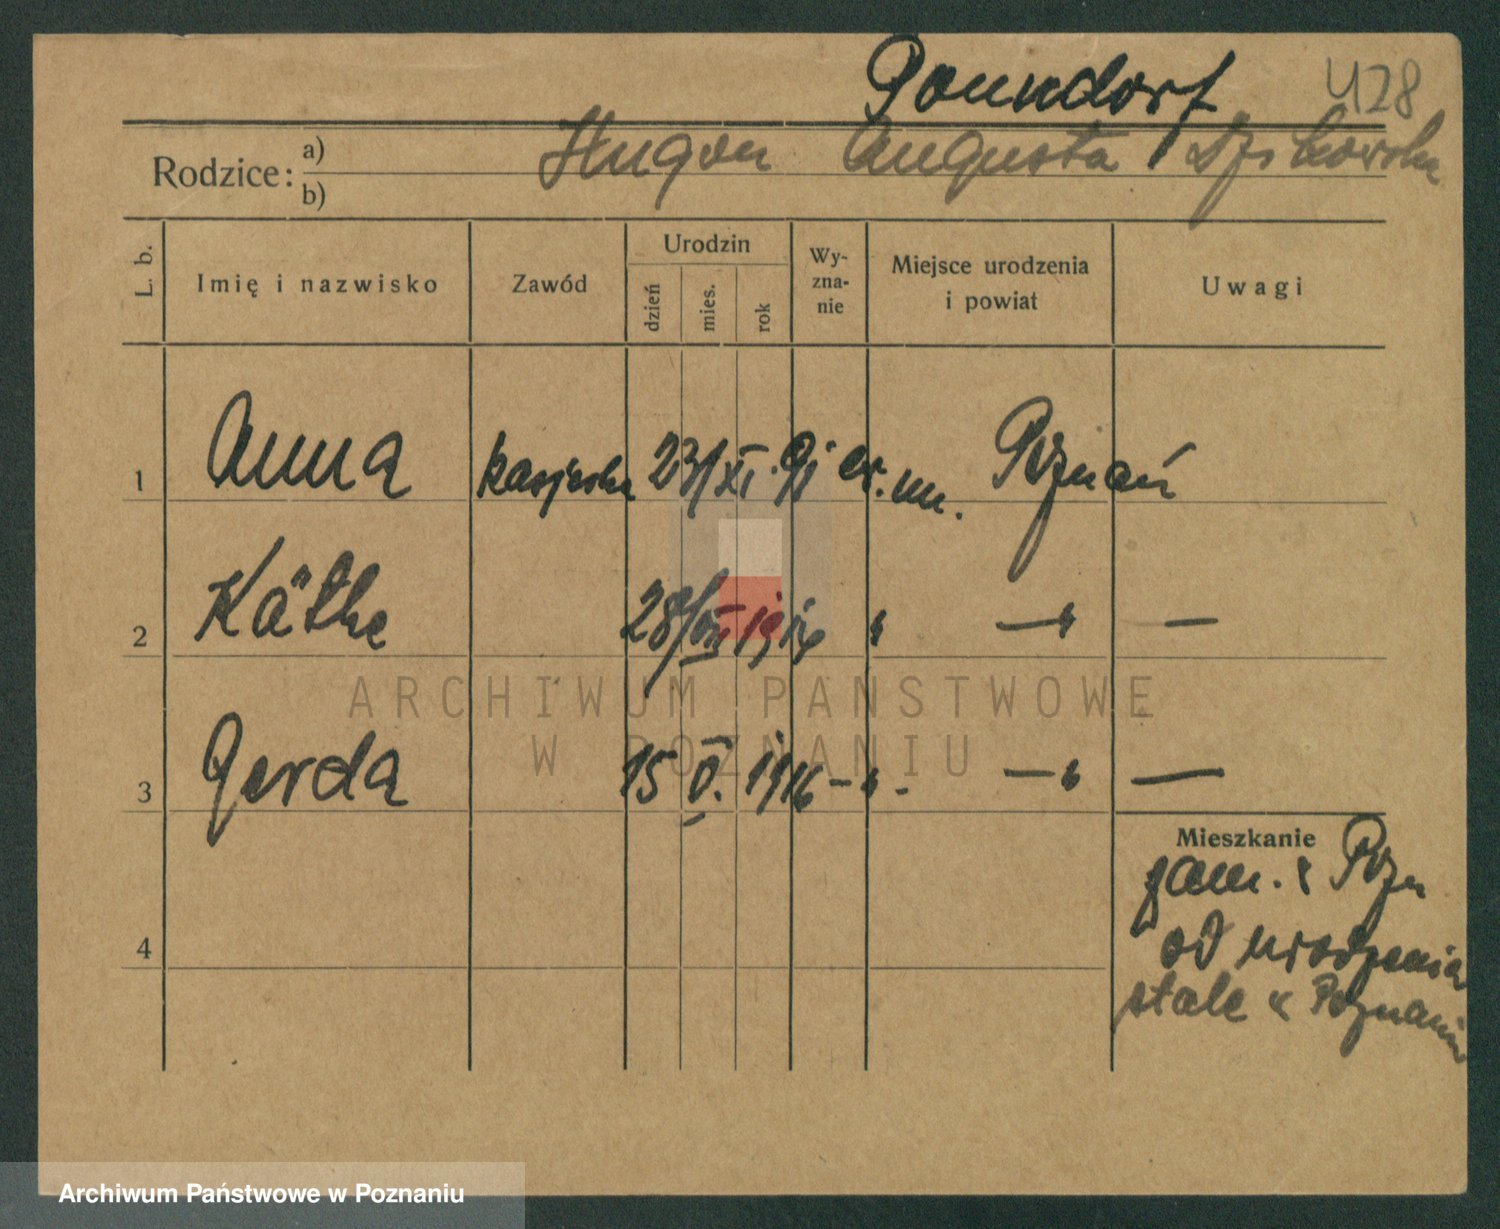 Ponndorf 428
Rodzice: a) b) Hugon Augusta
L. b. Imię i nazwisko Zawód Urodzin dzień mies. rok Wy-zna-nie Miejsce urodzenia i powiat Uwagi
1 Anna kasjerka 23/XI. 91 Poznań
2 Käthe 28/VIII 1914 " — " —
3 Gerda 15 V. 1916 — " — " —
Mieszkanie
zam. Pozn
4 od urodzenia
stale w Poznaniu
ARCHIWUM PAŃSTWOWE
W POZNANIU
Archiwum Państwowe w Poznaniu